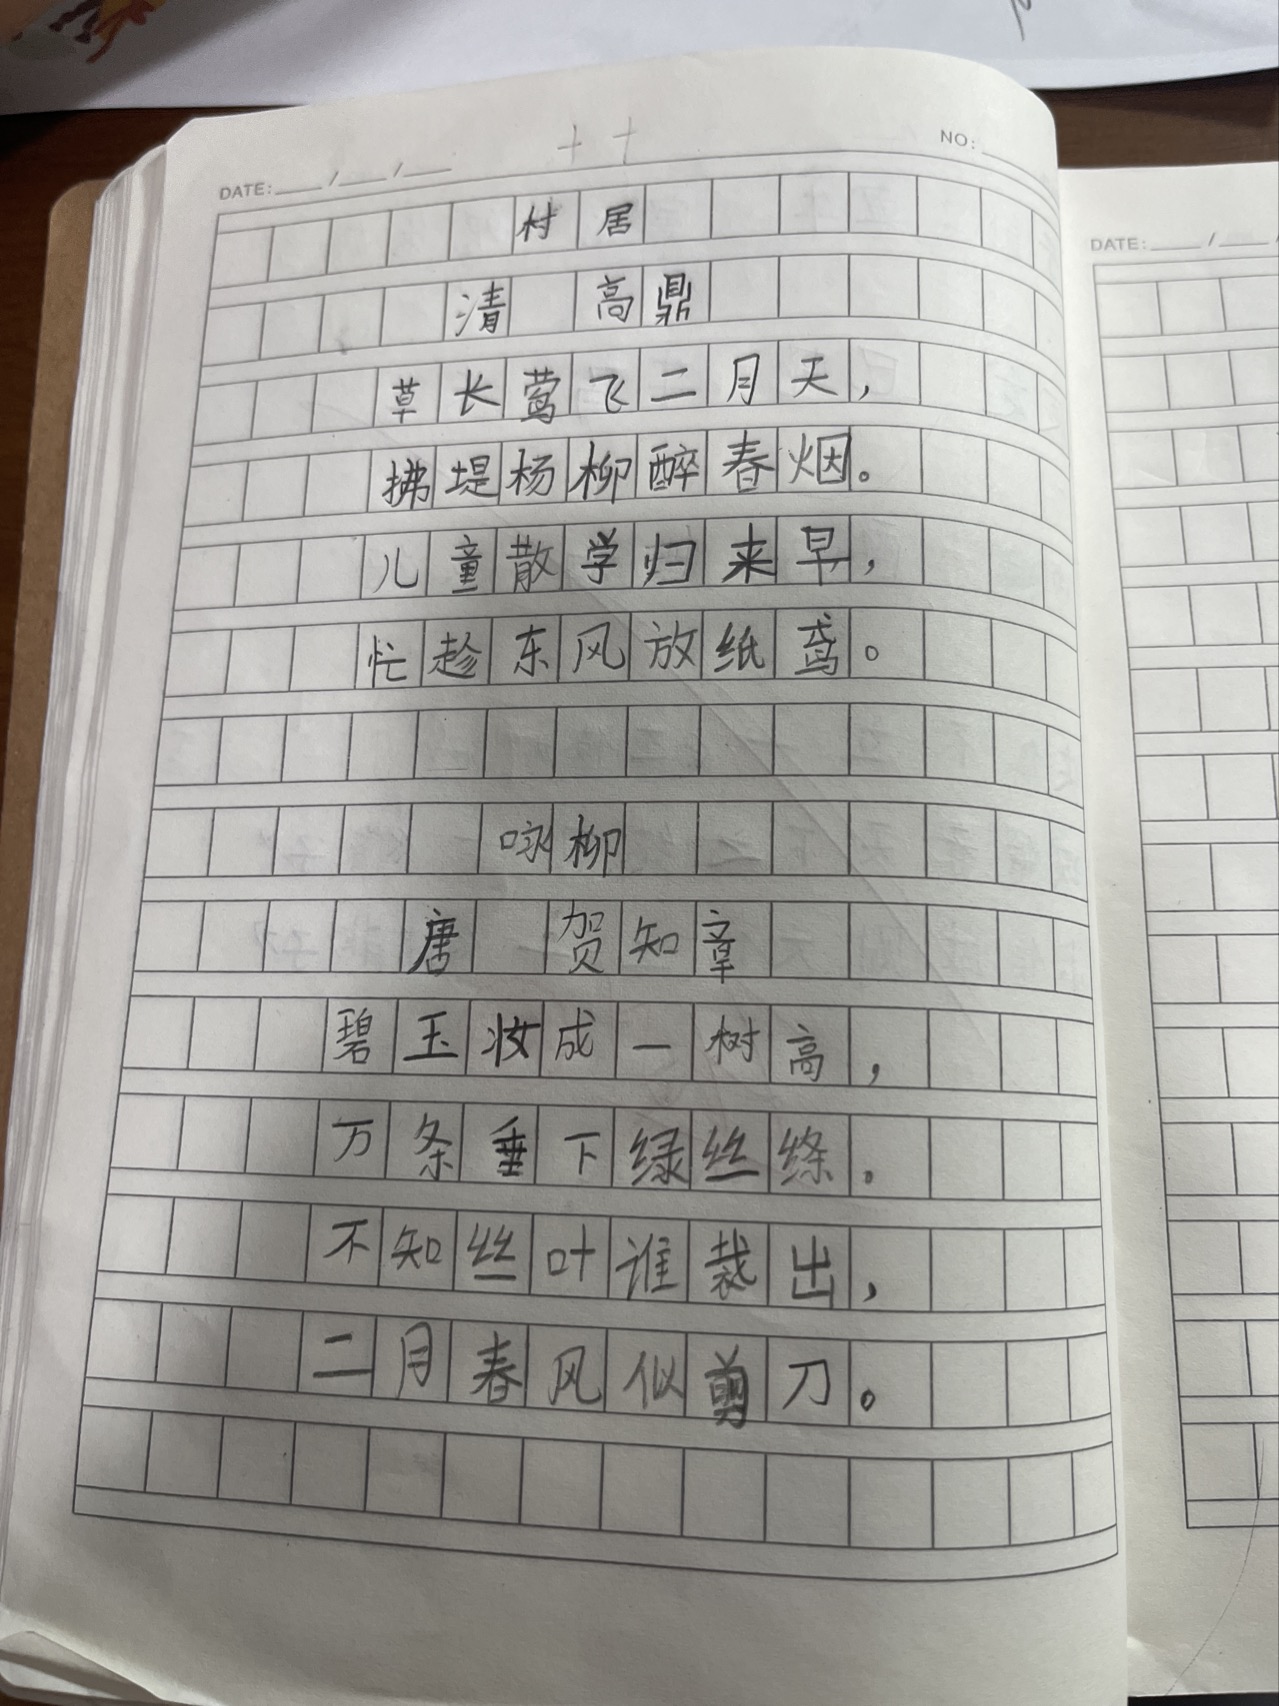 十 十
DATE: / /
NO:
村居
清 高鼎
草长莺飞二月天，
拂堤杨柳醉春烟。
儿童散学归来早，
忙趁东风放纸鸢。
咏柳
唐 贺知章
碧玉妆成一树高，
万条垂下绿丝绦。
不知丝叶谁裁出，
二月春风似剪刀。
DATE: / /